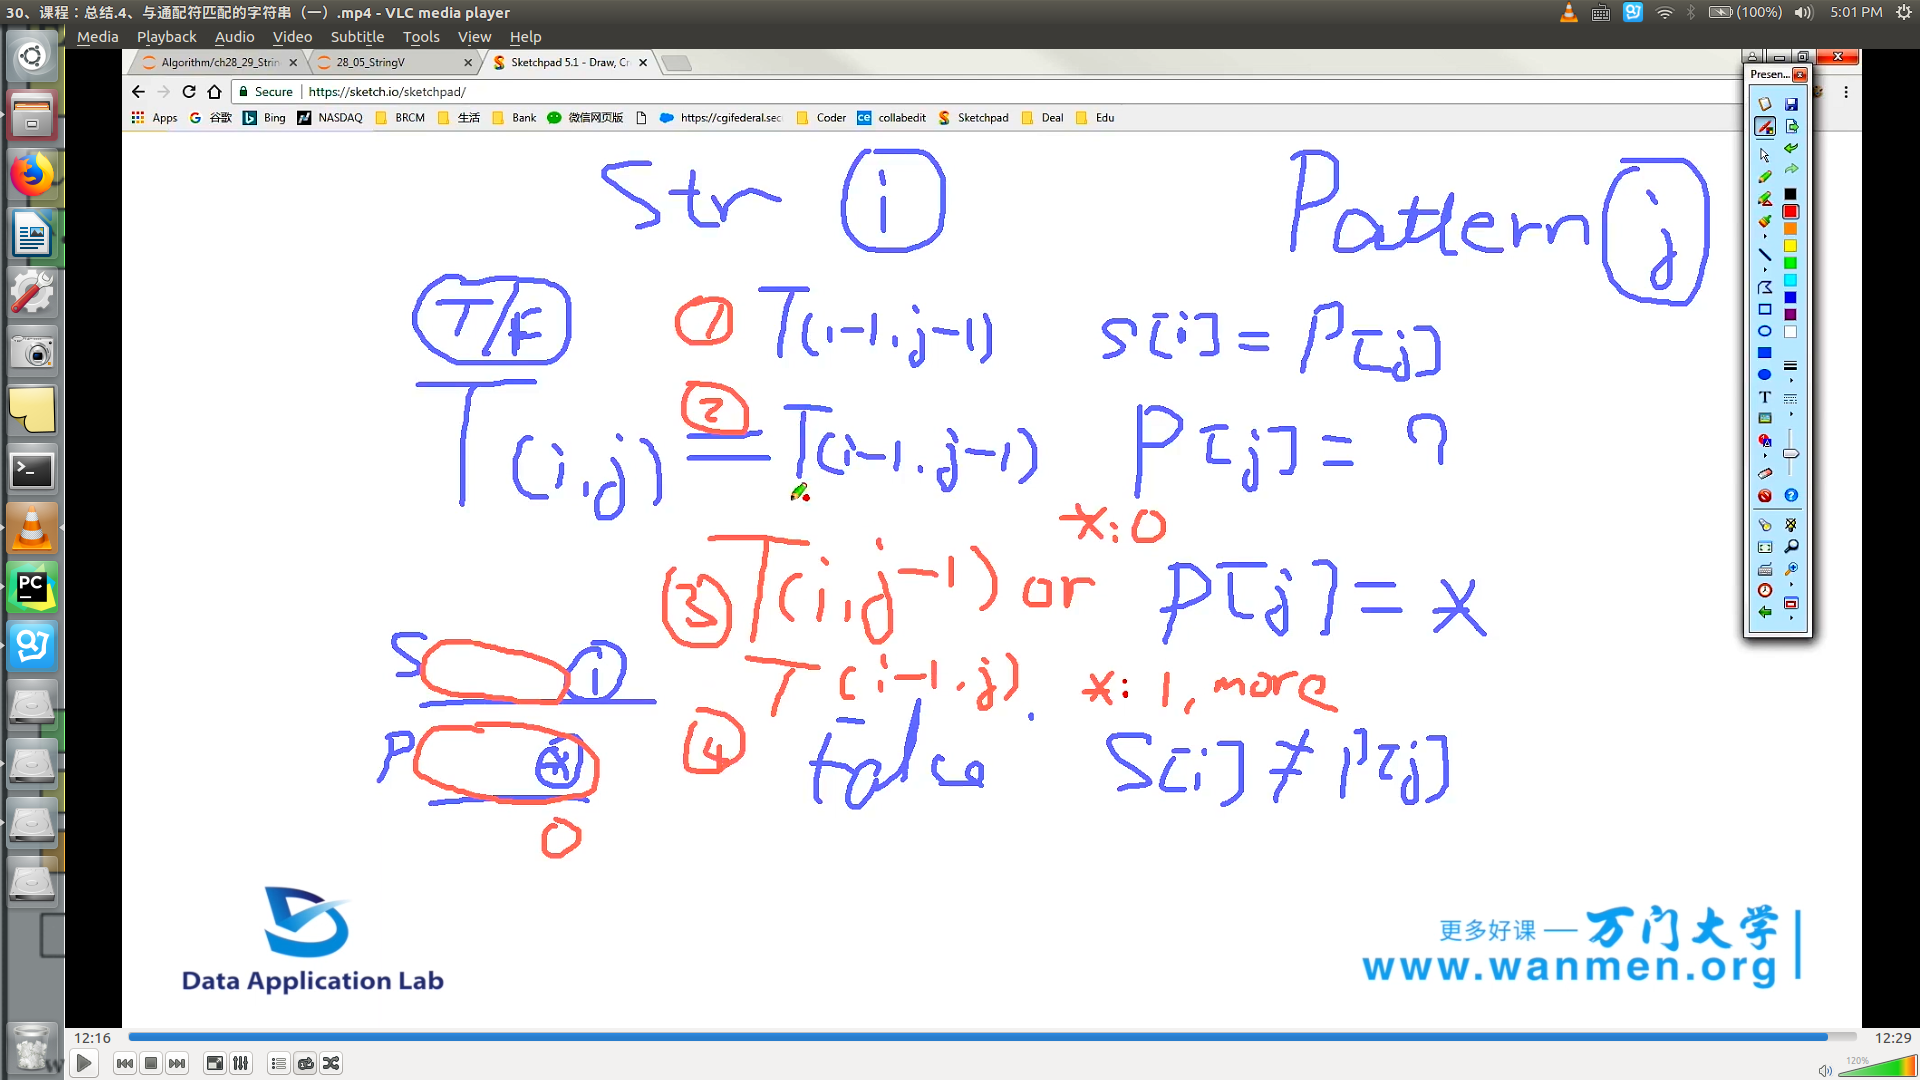 30、课程：总结.4、与通配符匹配的字符串（一）.mp4 - VLC media player
(100%) 5:01 PM
Media Playback Audio Video Subtitle Tools View Help
Algorithm/ch28_29_Strin 28_05_StringV Sketchpad 5.1 - Draw, Cr
Presen...
Secure https://sketch.io/sketchpad/
Apps 谷歌 Bing NASDAQ BRCM 生活 Bank 微信网页版 https://cgifederal.sec Coder collabedit Sketchpad Deal Edu
Str i Pattern j
T/F ① T(i-1, j-1) S[i] = P[j]
T(i,j) ② = T(i-1, j-1) P[j] = ?
*: 0
③ T(i, j-1) or P[j] = *
S i T(i-1, j) *: 1, more
P * ④ false S[i] ≠ P[j]
0
Data Application Lab
更多好课 — 万门大学
www.wanmen.org
12:16 12:29
120%